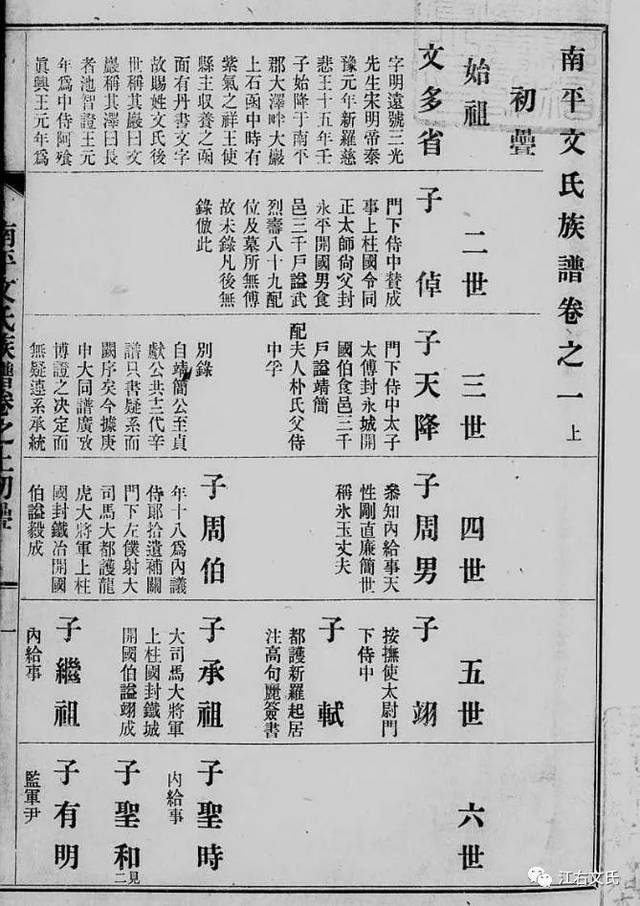 南平文氏族譜卷之一上
初疊
始祖
文多省
字明遠號三光
先生宋明帝泰
豫元年新羅慈
悲王十五年壬
子始降于南平
郡大澤畔大巖
上石函中時有
紫気之祥王使
縣主収養之函
面有丹書文字
故賜姓文氏後
世稱其巖曰文
巖稱其澤曰長
者池智證王元
年為中侍阿飡
眞興王元年為
二世
子倬
門下侍中賛成
事上柱國令同
正太師尙父封
永平開國男食
邑三千戶諡武
烈壽八十九配
位及墓所無傳
故未錄凡後無
錄倣此
三世
子天降
門下侍中太子
太傅封永城開
國伯食邑三千
戶諡靖簡
配夫人朴氏父侍
中孚
別錄
自靖簡公至貞
獻公共三代辛
譜只書疑系而
闕序矣今據庚
申大同譜廣攷
博證之決定而
無疑連系承統
四世
子周男
叅知內給事天
性剛直廉簡世
稱氷玉丈夫
子周伯
年十八為內議
侍郞拾遺補闕
門下左僕射大
司馬大都護龍
虎大將軍上柱
國封鐵冶開國
伯諡毅成
五世
子翊
按撫使太尉門
下侍中
子軾
都護新羅起居
注高句麗簽書
子承祖
大司馬大將軍
上柱國封鐵城
開國伯諡翊成
子繼祖
內給事
六世
子聖時
內給事
子聖和
見二
子有明
監軍尹
南平文氏族譜卷之上初疊
一
江右文氏